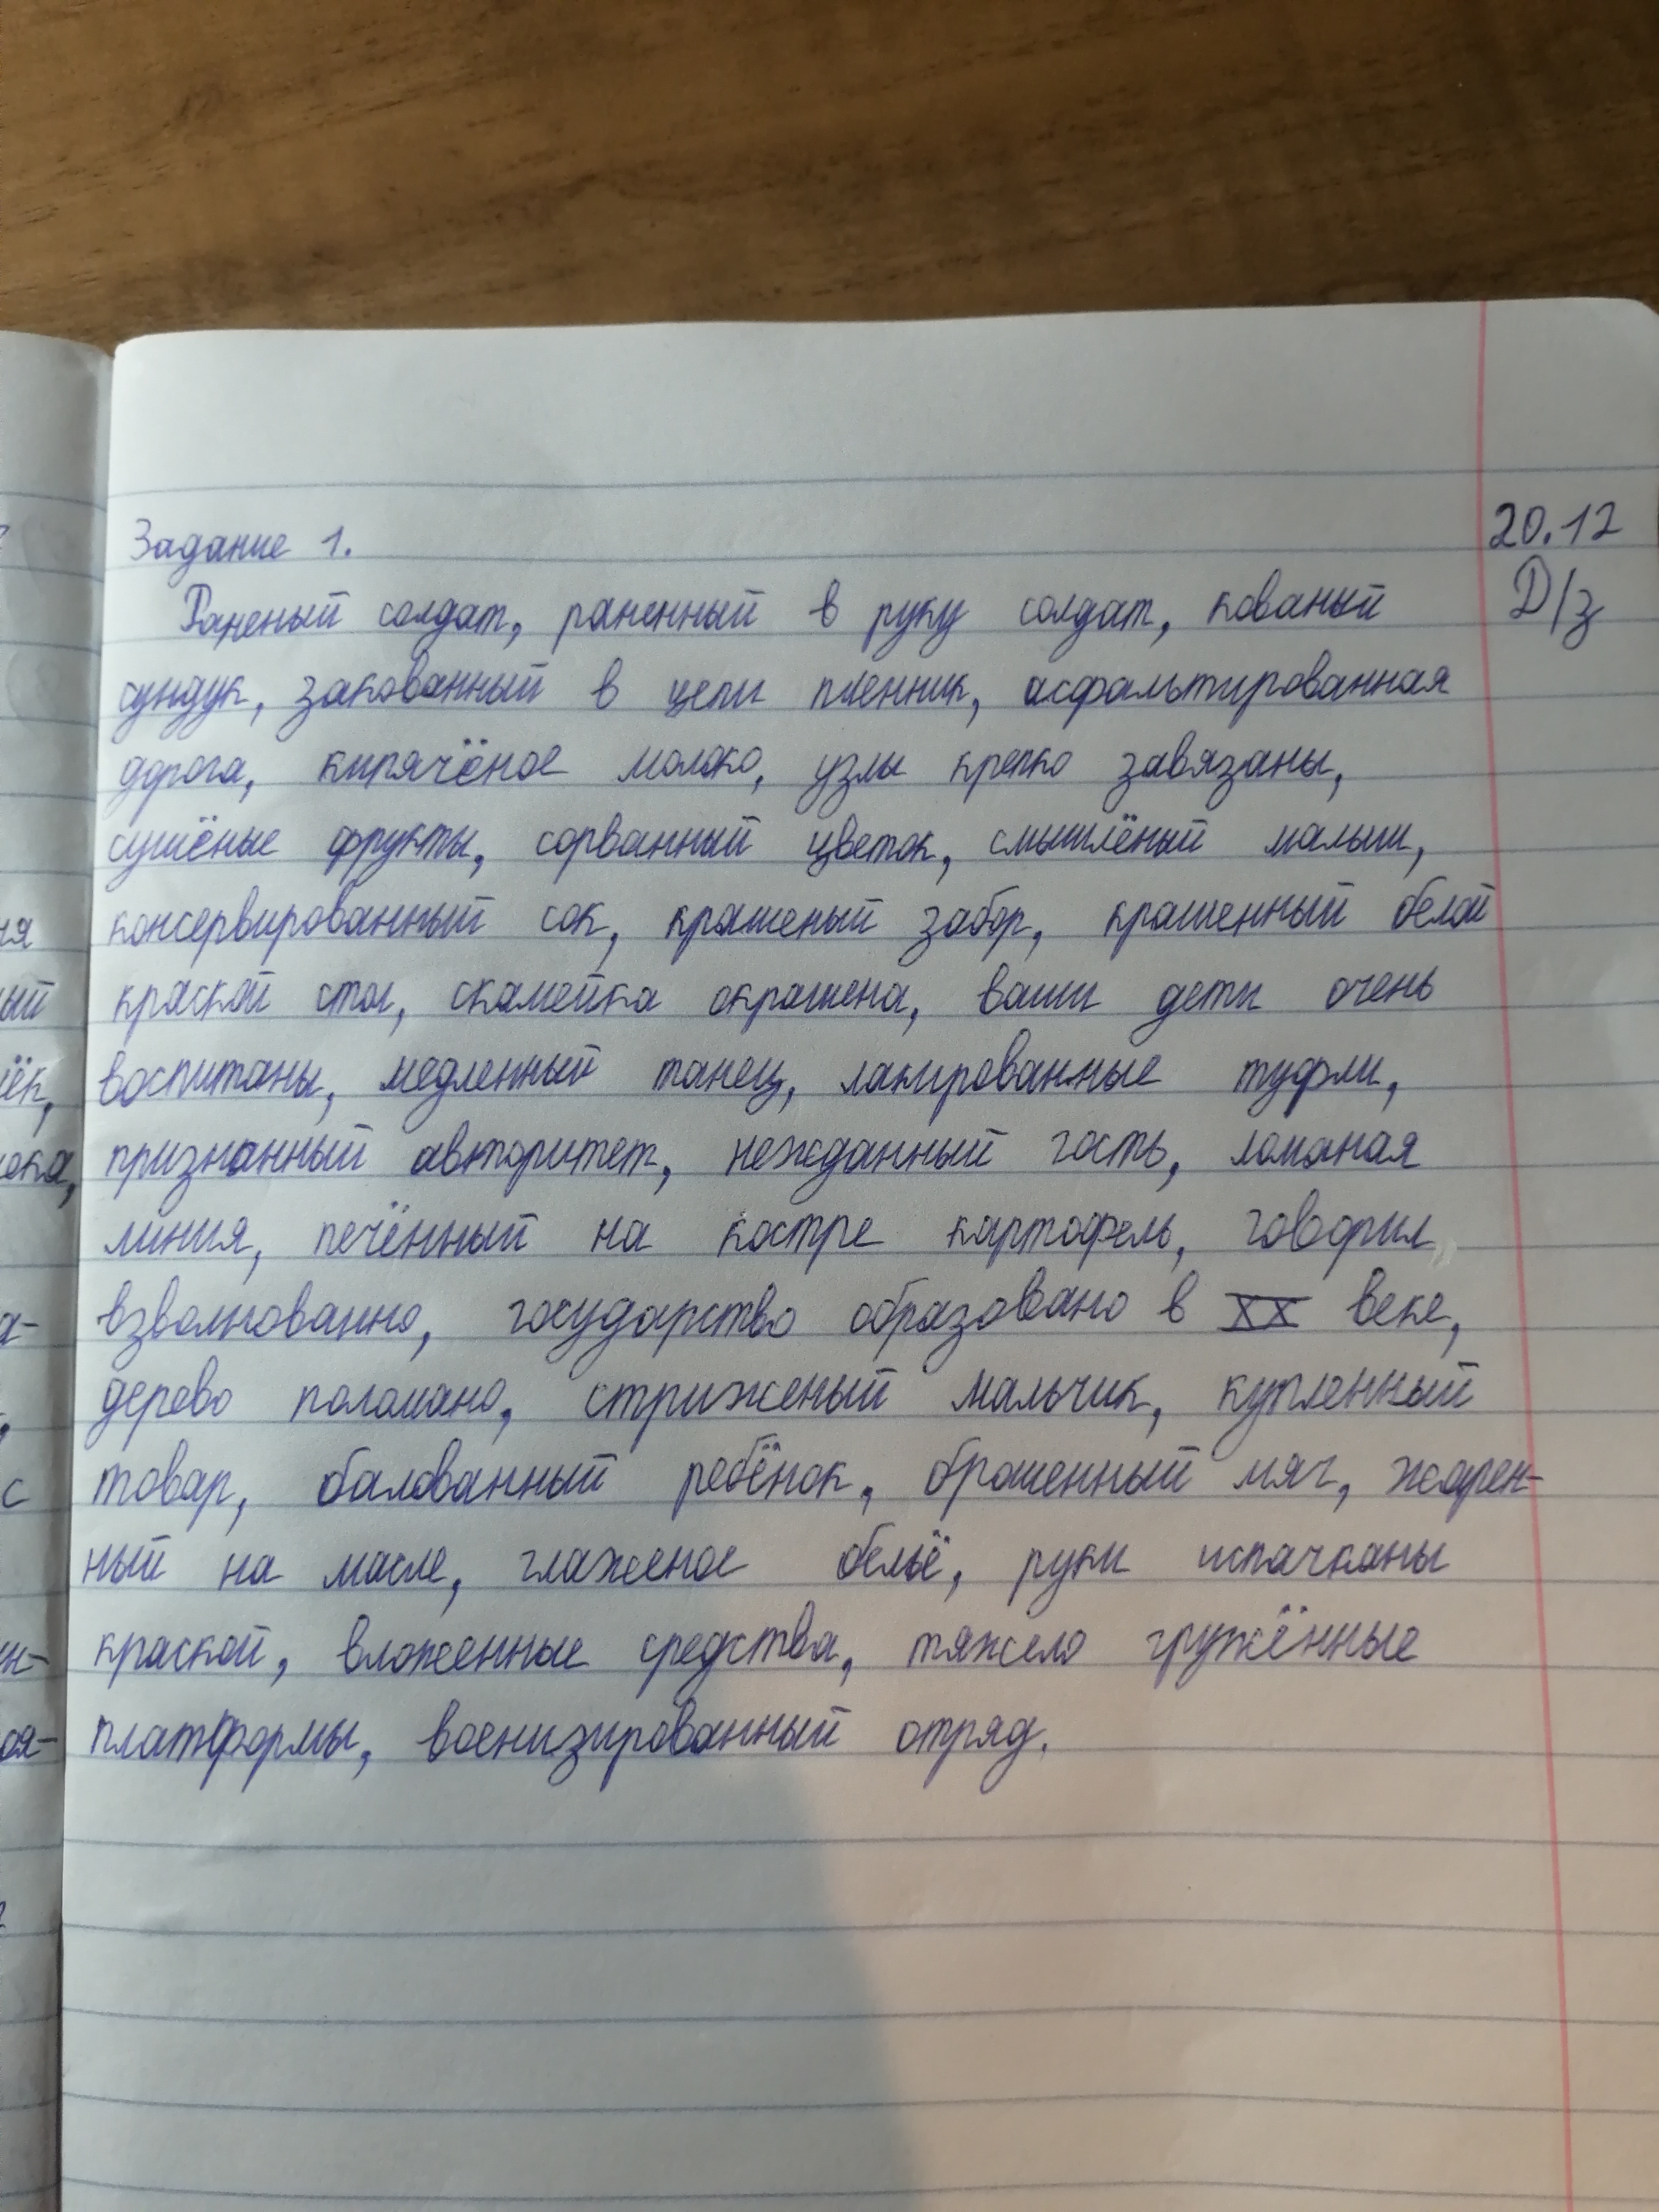 20.12
Задание 1.
Д/з
Раненый солдат, раненный в руку солдат, кованый
сундук, закованный в цепи пленник, асфальтированная
дорога, кипячёное молоко, узлы крепко завязаны,
сушёные фрукты, сорванный цветок, смышлёный малыш,
консервированный сок, крашеный забор, крашенный белой
краской стол, скамейка окрашена, ваши дети очень
воспитаны, медленный танец, лакированные туфли,
признанный авторитет, нежданный гость, ломаная
линия, печённый на костре картофель, говорил
взволнованно, государство образовано в XX веке,
дерево поломано, стриженый мальчик, купленный
товар, балованный ребёнок, брошенный мяч, жарен-
ный на масле, глаженое бельё, руки испачканы
краской, вложенные средства, тяжело гружённые
платформы, военизированный отряд.